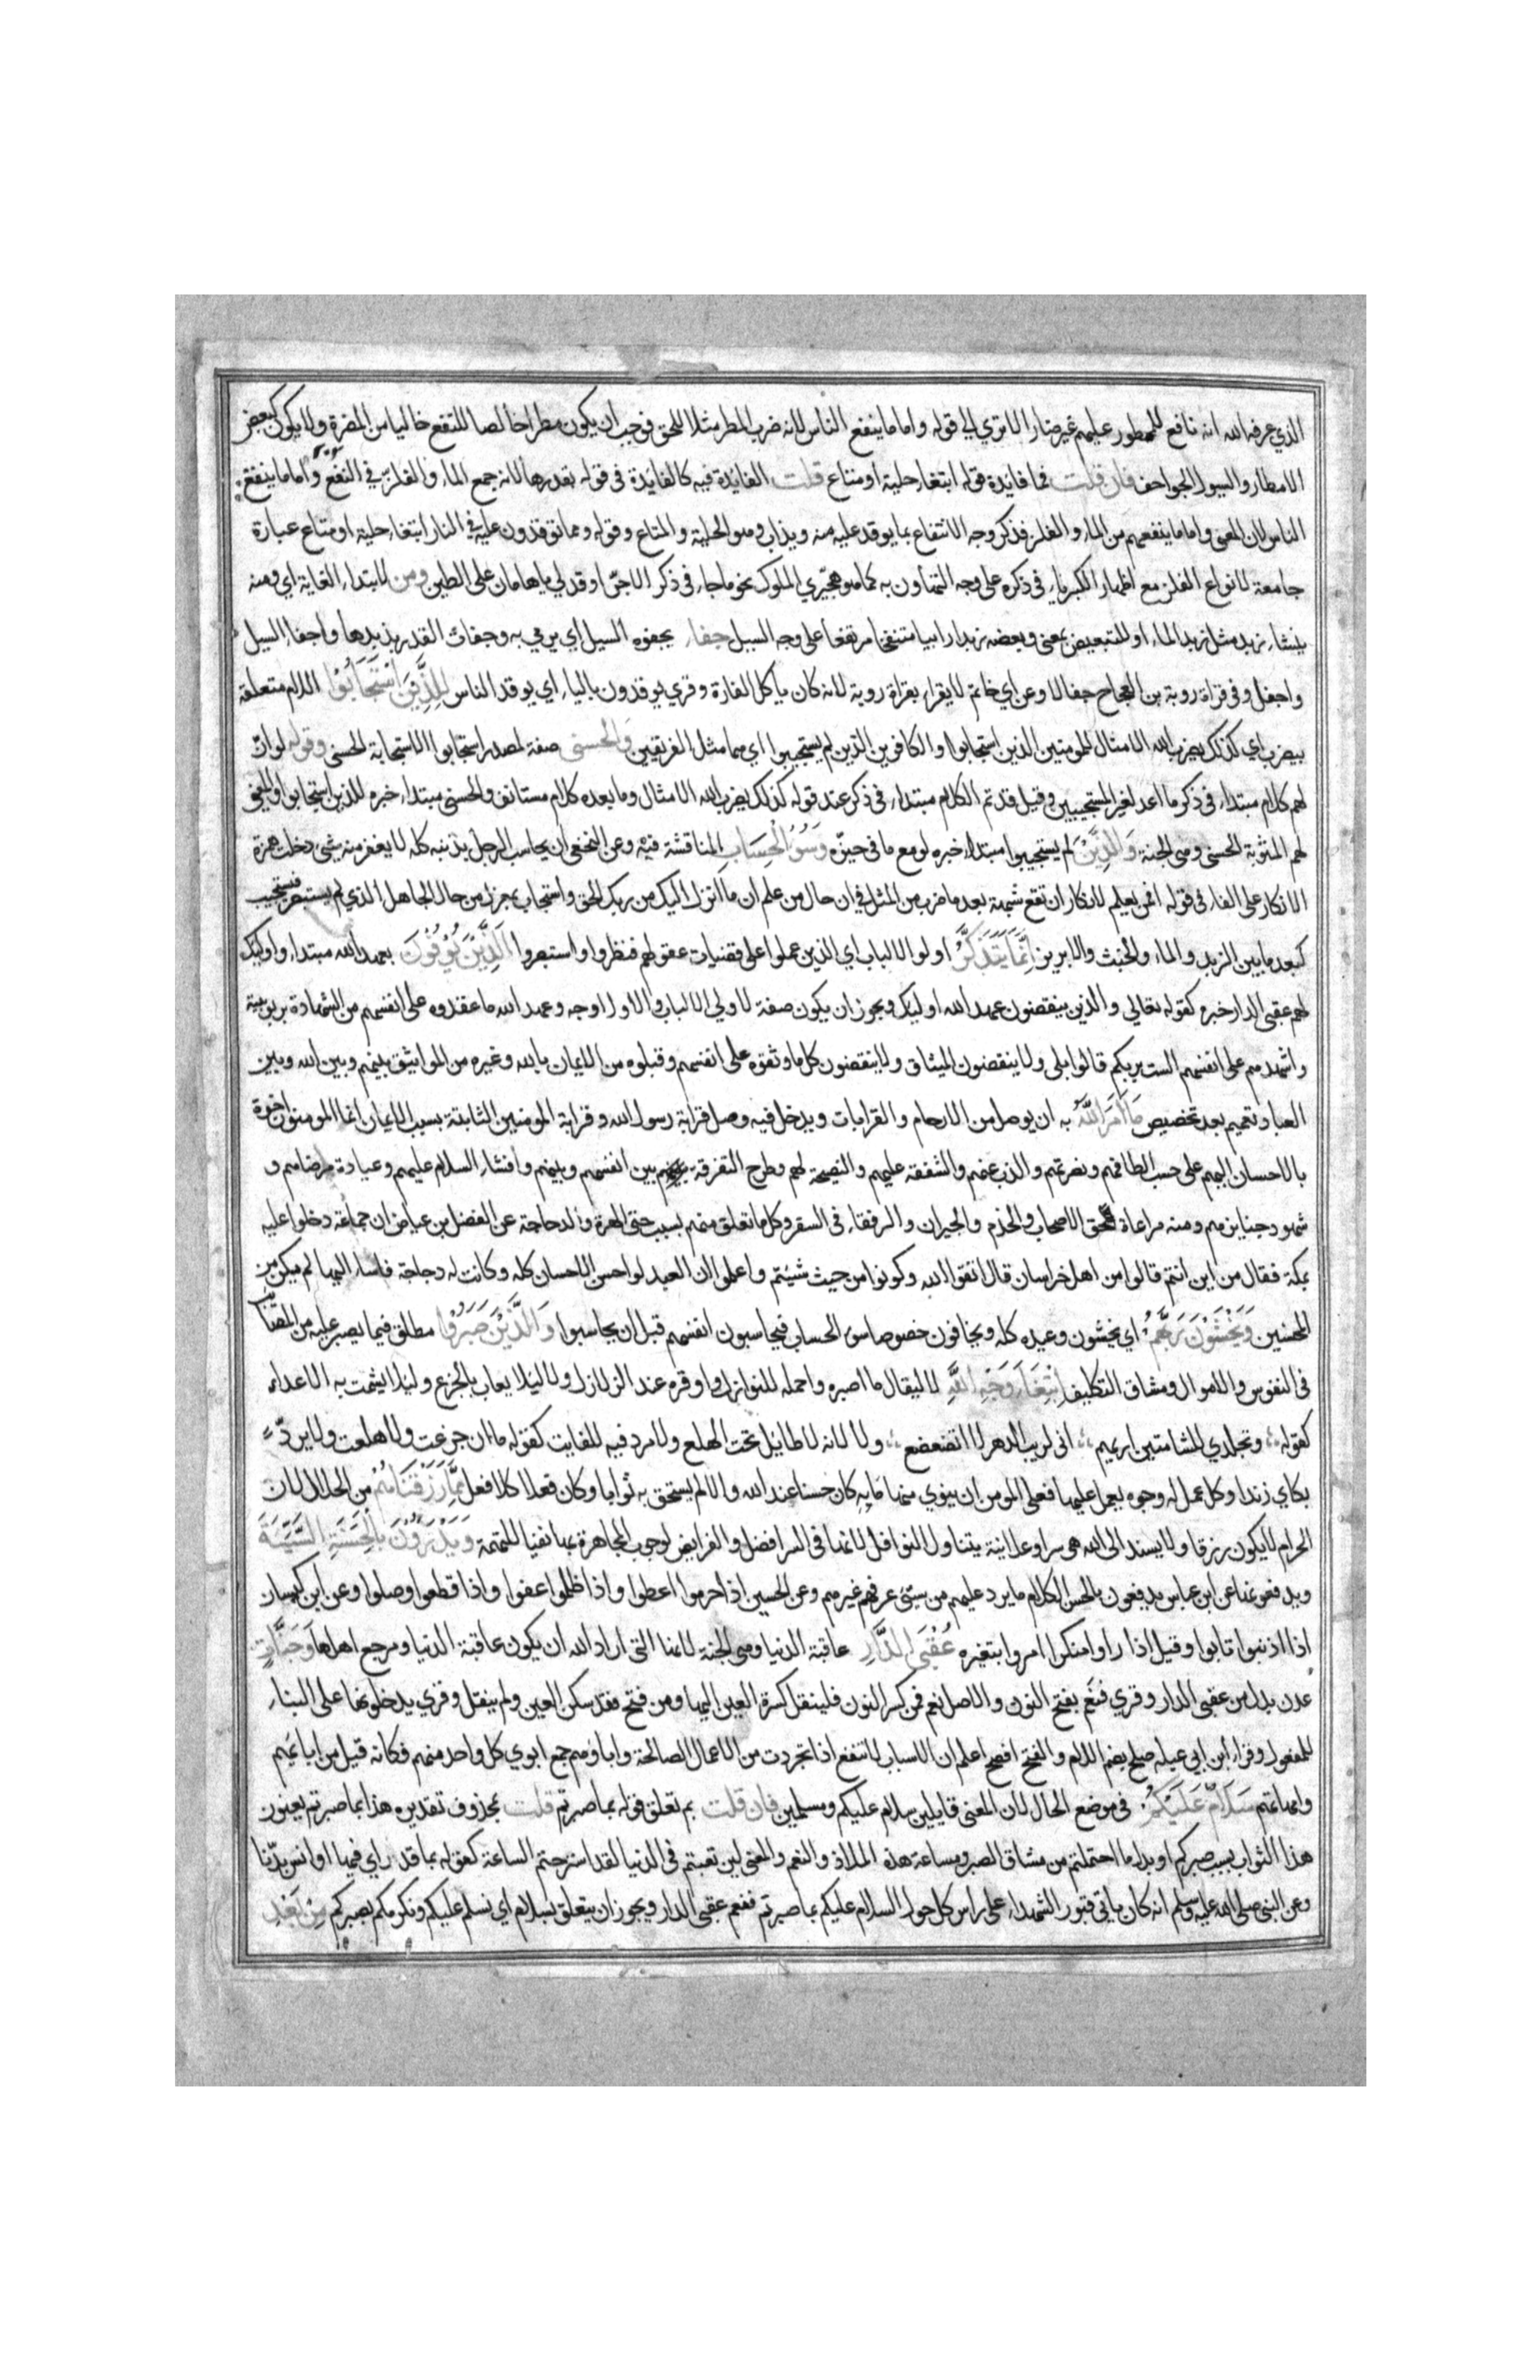 الذي عرفه الله انه نافع للممطور عليهم غير ضار الا تري الي قوله واما ما ينفع الناس لانه ضرب المطر مثلا للحق فوجب ان يكون مطرا خالصا للنفع خاليا من المضرة ولا يكون كبعض
الامطار والسيول الجواحف فان قلت فما فايدة قوله ابتغاء حلية او متاع قلت الفايدة فيه كالفايدة في قوله بقدرها لانه جمع الماء والفلز في النفع واما ما ينفع
الناس لان المعني واما ما ينفعهم من الماء والفلز فذكر وجه الانتفاع بما يوقد عليه منه ويذاب وهو الحلية والمتاع وقوله ومما توقدون عليه في النار ابتغاء حلية او متاع عبارة
جامعة لانواع الفلز مع اظهار الكبرياء في ذكره علي وجه التهاون به كما هو هجيري الملوك نحو ما جاء في ذكر الاجر اوقد لي يا هامان علي الطين ومن لابتداء الغاية اي ومنه
ينشاء زبد مثل زبد الماء او للتبعيض بمعني وبعضه زبد رابيا منتفخا مرتفعا علي وجه السيل جفاء يجفوه السيل اي يرمي به وجفات القدر بزبدها واجفا السيل
واجفل وفي قراة روبة بن العجاج جفالا وعن ابي حاتم لا يقراء بقراة روبة لانه كان ياكل الفارة وقري يوقدون بالياء اي يوقد الناس للذين استجابوا اللام متعلقة
بيضرب اي كذلك يضرب الله الامثال للمومنين الذين استجابوا والكافرين الذين لم يستجيبوا اي هما مثل الفريقين والحسني صفة لمصدر استجابوا الاستجابة الحسني وقوله لو ان
لهم كلام مبتداء في ذكر ما اعد لغير المستجيبين وقيل قد تم الكلام مبتداء في ذكر عند قوله كذلك يضرب الله الامثال وما بعده كلام مستانف والحسني مبتداء خبره للذين استجابوا والمعني
لهم المثوبة الحسني وهي الجنة والذين لم يستجيبوا مبتداء خبره لو مع ما في حيزه وسوء الحساب المناقشة فيه وعن النخعي ان يحاسب الرجل بذنبه كله لا يغفر منه شي دخلت همزة
الانكار علي الفاء في قوله افمن يعلم لانكار ان تقع شبهة بعد ما ضرب من المثل في ان حال من علم ان ما انزل اليك من ربك الحق واستجاب بمعزل من حال الجاهل الذي لم يستبصر فيستجيب
كبعد ما بين الزبد والماء والخبث والابريز انما يتذكر اولوا الالباب اي الذين عملوا علي قضيات عقولهم فنظروا واستبصروا الذين يوفون بعهد الله مبتداء واوليك
لهم عقبي الدار خبره كقوله تعالي والذين ينقضون عهد الله اوليك ويجوز ان يكون صفة لاولي الالباب والاول اوجه وعهد الله ما عقدوه علي انفسهم من الشهادة بربوبيته
واشهدهم علي انفسهم الست بربكم قالوا بلي ولا ينقضون الميثاق ولا ينقضون كل ما وثقوه علي انفسهم وقبلوه من الايمان بالله وغيره من المواثيق بينهم وبين الله وبين
العباد تعميم بعد تخصيص ما امر الله به ان يوصل من الارحام والقرابات ويدخل فيه وصل قرابة رسول الله وقرابة المومنين الثابتة بسبب الايمان انما المومنون اخوة
بالاحسان اليهم علي حسب الطاقة ونصرتهم والذب عنهم والشفقة عليهم والنصيحة لهم وطرح التفرقة بين انفسهم وبينهم وافشاء السلام عليهم وعيادة مرضاهم و
شهود جنايزهم ومنه مراعاة حق الاصحاب والخدم والجيران والرفقاء في السفر وكل ما تعلق منهم بسبب حتي الهرة والدجاجة عن الفضل بن عياض ان جماعة دخلوا عليه
بمكة فقال من اين انتم قالوا من اهل خراسان قال اتقوا الله وكونوا من حيث شيتم واعلموا ان العبد لو احسن الاحسان كله وكانت له دجاجة فاساء اليها لم يكن من
المحسنين ويخشون ربهم اي يخشون وعيده كله ويخافون خصوصا سوء الحساب فيحاسبون انفسهم قبل ان يحاسبوا والذين صبروا مطلق فيما يصبر عليه من المصايب
في النفوس والاموال ومشاق التكليف ابتغاء وجه الله لا ليقال ما اصبره واحمله للنوازل واوقره عند الزلازل ولا ليلا يعاب بالجزع وليلا يشمت به الاعداء
كقوله وتجلدي للشامتين اريهم اني لريب الدهر لا اتضعضع ولا لانه لا طايل تحت الهلع ولا مرد فيه للفايت كقوله ما ان جزعت ولا هلعت ولا يرد
بكاي زندا وكل عمل له وجوه يعمل عليها فعلي المومن ان ينوي منها ما به كان حسنا عند الله والا لم يستحق به ثوابا وكان فعلا كلا فعل مما رزقناهم من الحلال لان
الحرام لا يكون رزقا ولا يسند الي الله هي سرا وعلانية يتناول النوافل لانها في السر افضل والفرايض لوجوب المجاهرة بها نفيا للتهمة ويدرؤن بالحسنة السيئة
ويدفعونها عن ابن عباس يدفعون بالحسن الكلام ما يرد عليهم من سيئ غيرهم وعن الحسين اذا حرموا اعطوا واذا ظلموا عفوا واذا قطعوا وصلوا وعن ابن كيسان
اذا اذنبوا تابوا وقيل اذا راوا منكرا امروا بتغيره عقبي الدار عاقبة الدنيا وهي الجنة لانها التي اراد الله ان يكون عاقبة الدنيا ومرجع اهلها وجنات
عدن بدل من عقبي الدار وقري فنعم بفتح النون والاصل نعم فمن كسر النون فلينقل كسرة العين اليها ومن فتح فقد سكن العين ولم ينقل وقري يدخلونها علي البناء
للمفعول وقراء ابن ابي عبله صلح بضم اللام والفتح افصح اعلم ان الاسباب لا تنفع اذا تجردت من الاعمال الصالحة واباؤهم جمع ابوي كل واحد منهم فكانه قيل من ابايهم
وامهاتهم سلام عليكم في موضع الحال لان المعني قايلين سلام عليكم ومسلمين فان قلت بم تعلق قوله بما صبرتم قلت بمحذوف تقديره هذا بما صبرتم يعنون
هذا الثواب بسبب صبركم او بدل ما احتملتم من مشاق الصبر ومتاعبه هذه الملاذ والنعم والمعني لين تعبتم في الدنيا لقد استرحتم الساعة كقوله بما قد اري فيها اوانس بدنا
وعن النبي صلي الله عليه وسلم انه كان ياتي قبور الشهداء علي راس كل حول السلام عليكم بما صبرتم فنعم عقبي الدار ويجوز ان يتعلق بسلام اي نسلم عليكم ونكرمكم بصبركم من بعد